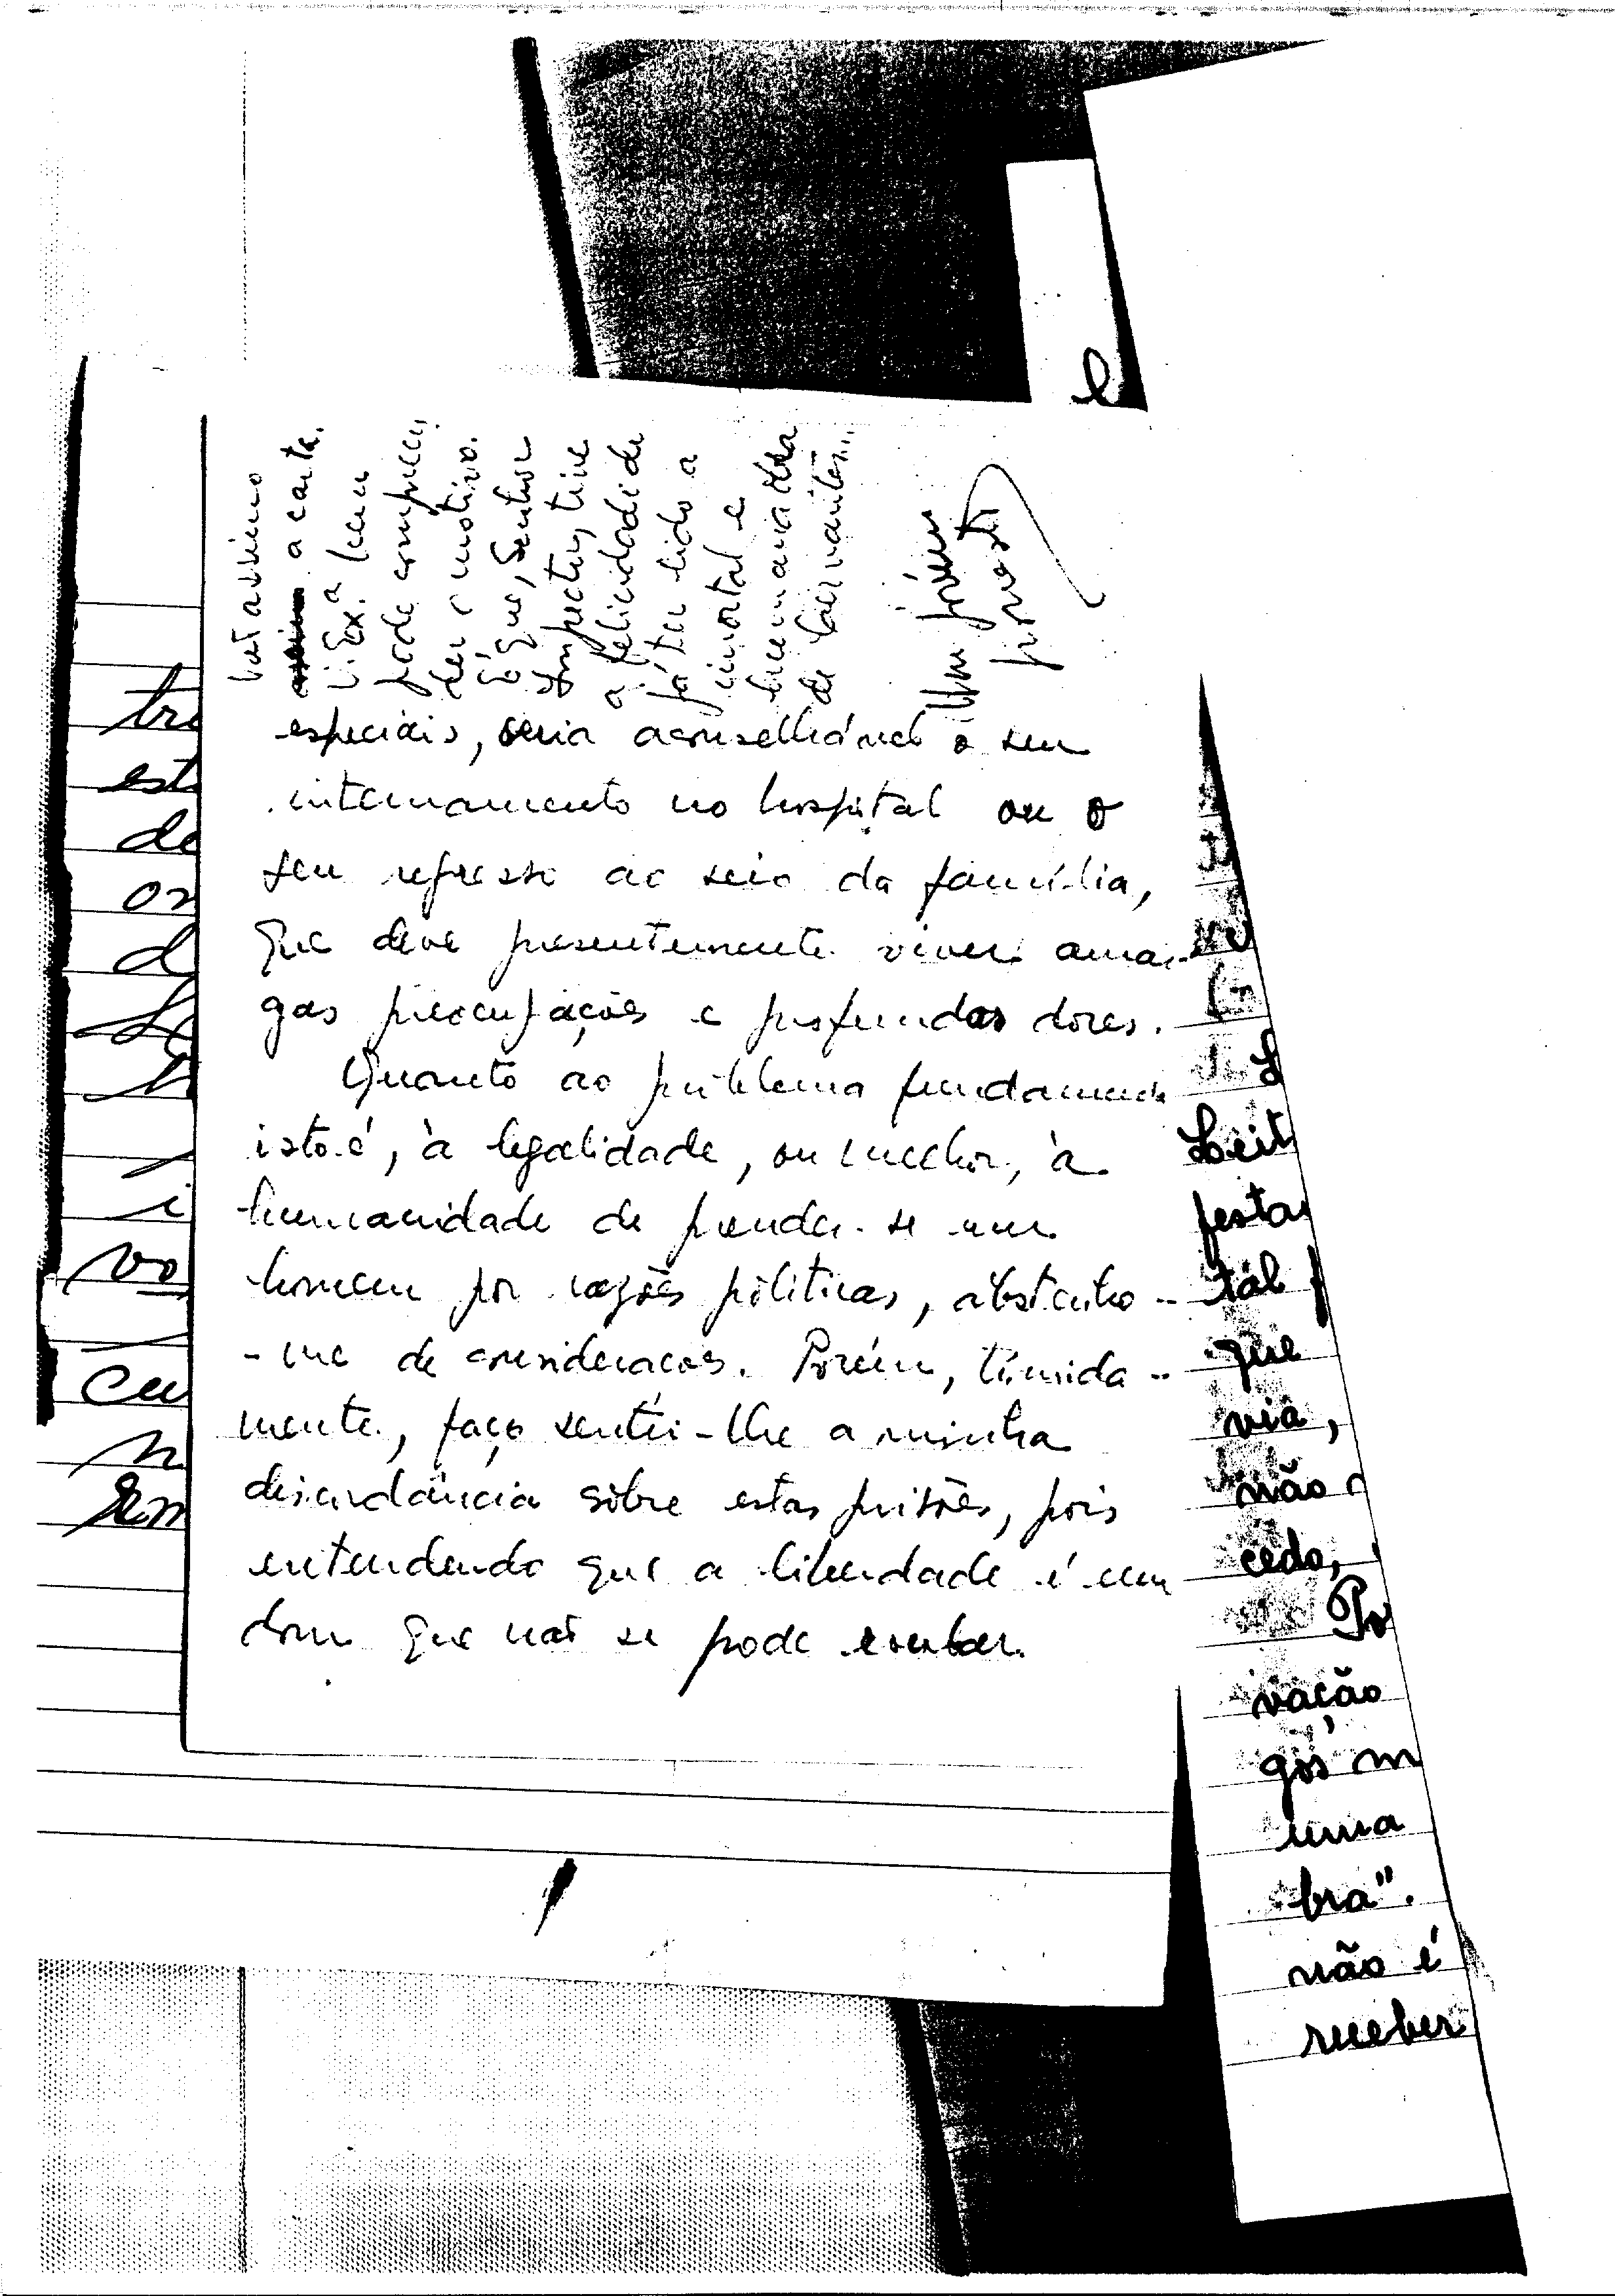 especiais, seria aconselhável o seu
internamento no hospital ou o
seu regresso ao seio da família,
que deve presentemente viver amar-
gas preocupações e profundas dores.
Quanto ao problema fundamental
isto é, à legalidade, ou melhor, à
humanidade de prender-se um
homem por razões políticas, abstenho-
-me de considerações. Porém, tímida-
mente, faço sentir-lhe a minha
discordância sôbre estas prisões, pois
entendendo que a liberdade é um
dom que não se pode roubar.
Não assino
a carta.
V. Ex.ª bem
pode compreen-
der o motivo.
É que, Senhor
Inspector, tive
a felicidade de
já ter lido a
imortal e
humana obra
de Cervantes...
Um jóvem
honesto
tre
est
de
on
d
i
vo
cu
n
em
e
Leit
festa
tal
que
via,
não
cedo,
Po
vação
gos m
uma
bra".
não é
receber